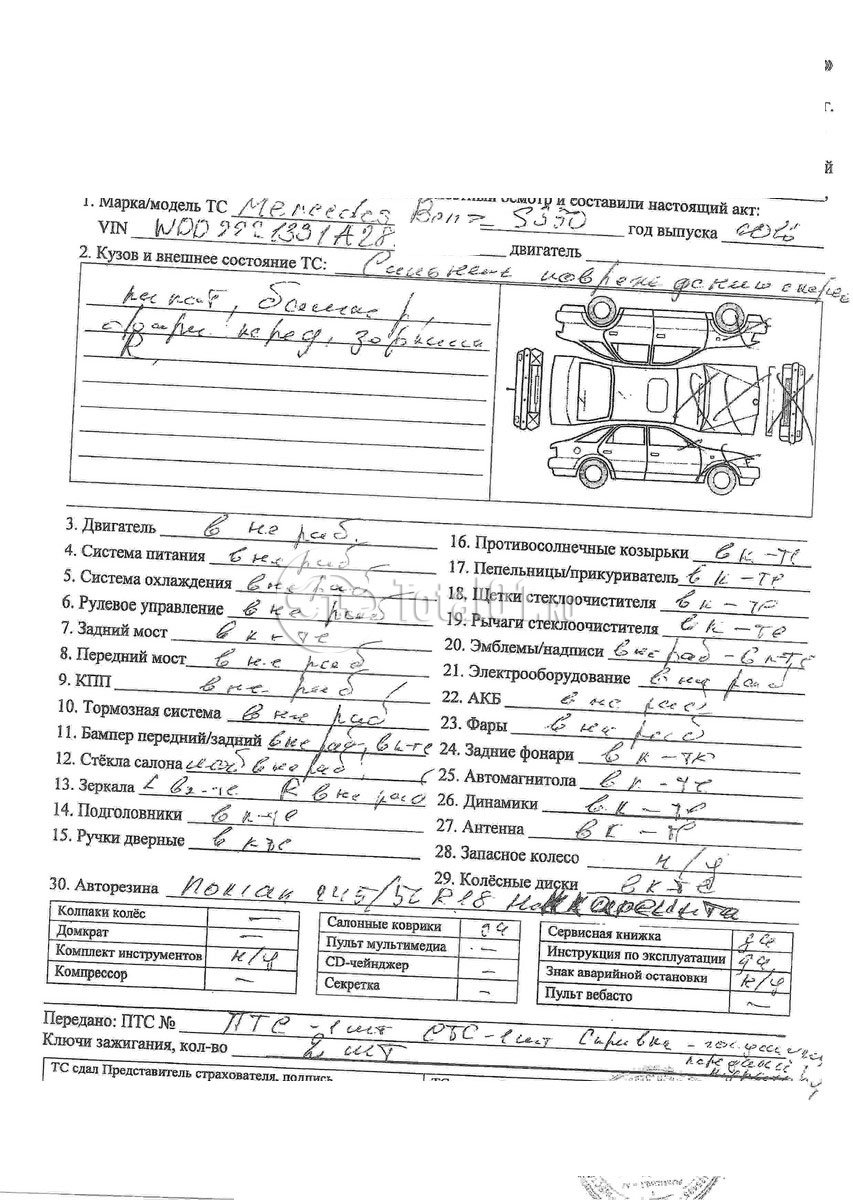 »
г.
й
1. Марка/модель ТС Mercedes Benz S350 осмотр и составили настоящий акт: год выпуска
VIN WDD2221331A28 двигатель
2. Кузов и внешнее состояние ТС:
R,
3. Двигатель в не раб.
4. Система питания в не раб
5. Система охлаждения в не раб
6. Рулевое управление в не раб
7. Задний мост в к-те
8. Передний мост в не раб
9. КПП в не раб
10. Тормозная система в не раб
11. Бампер передний/задний в не раб, в к-те
12. Стёкла салона лоб в не раб
13. Зеркала L в к-те R в не раб
14. Подголовники в к-те
15. Ручки дверные в к-те
16. Противосолнечные козырьки в к-те
17. Пепельницы/прикуриватель в к-те
18. Щетки стеклоочистителя в к-те
19. Рычаги стеклоочистителя в к-те
20. Эмблемы/надписи в не раб - в к-те
21. Электрооборудование в не раб
22. АКБ в не раб
23. Фары в не раб
24. Задние фонари в к-те
25. Автомагнитола в к-те
26. Динамики в к-те
27. Антенна в к-те
28. Запасное колесо н/у
29. Колёсные диски в к-те
30. Авторезина 245/50 R18
Колпаки колёс —
Домкрат —
Комплект инструментов н/у
Компрессор —
Салонные коврики да
Пульт мультимедиа —
CD-чейнджер —
Секретка —
Сервисная книжка да
Инструкция по эксплуатации да
Знак аварийной остановки н/у
Пульт вебасто —
Передано: ПТС № ПТС - 1 шт СТС - 1 шт Справка -
Ключи зажигания, кол-во 2 шт
ТС сдал Представитель страхователя, подпись
Total01.ru